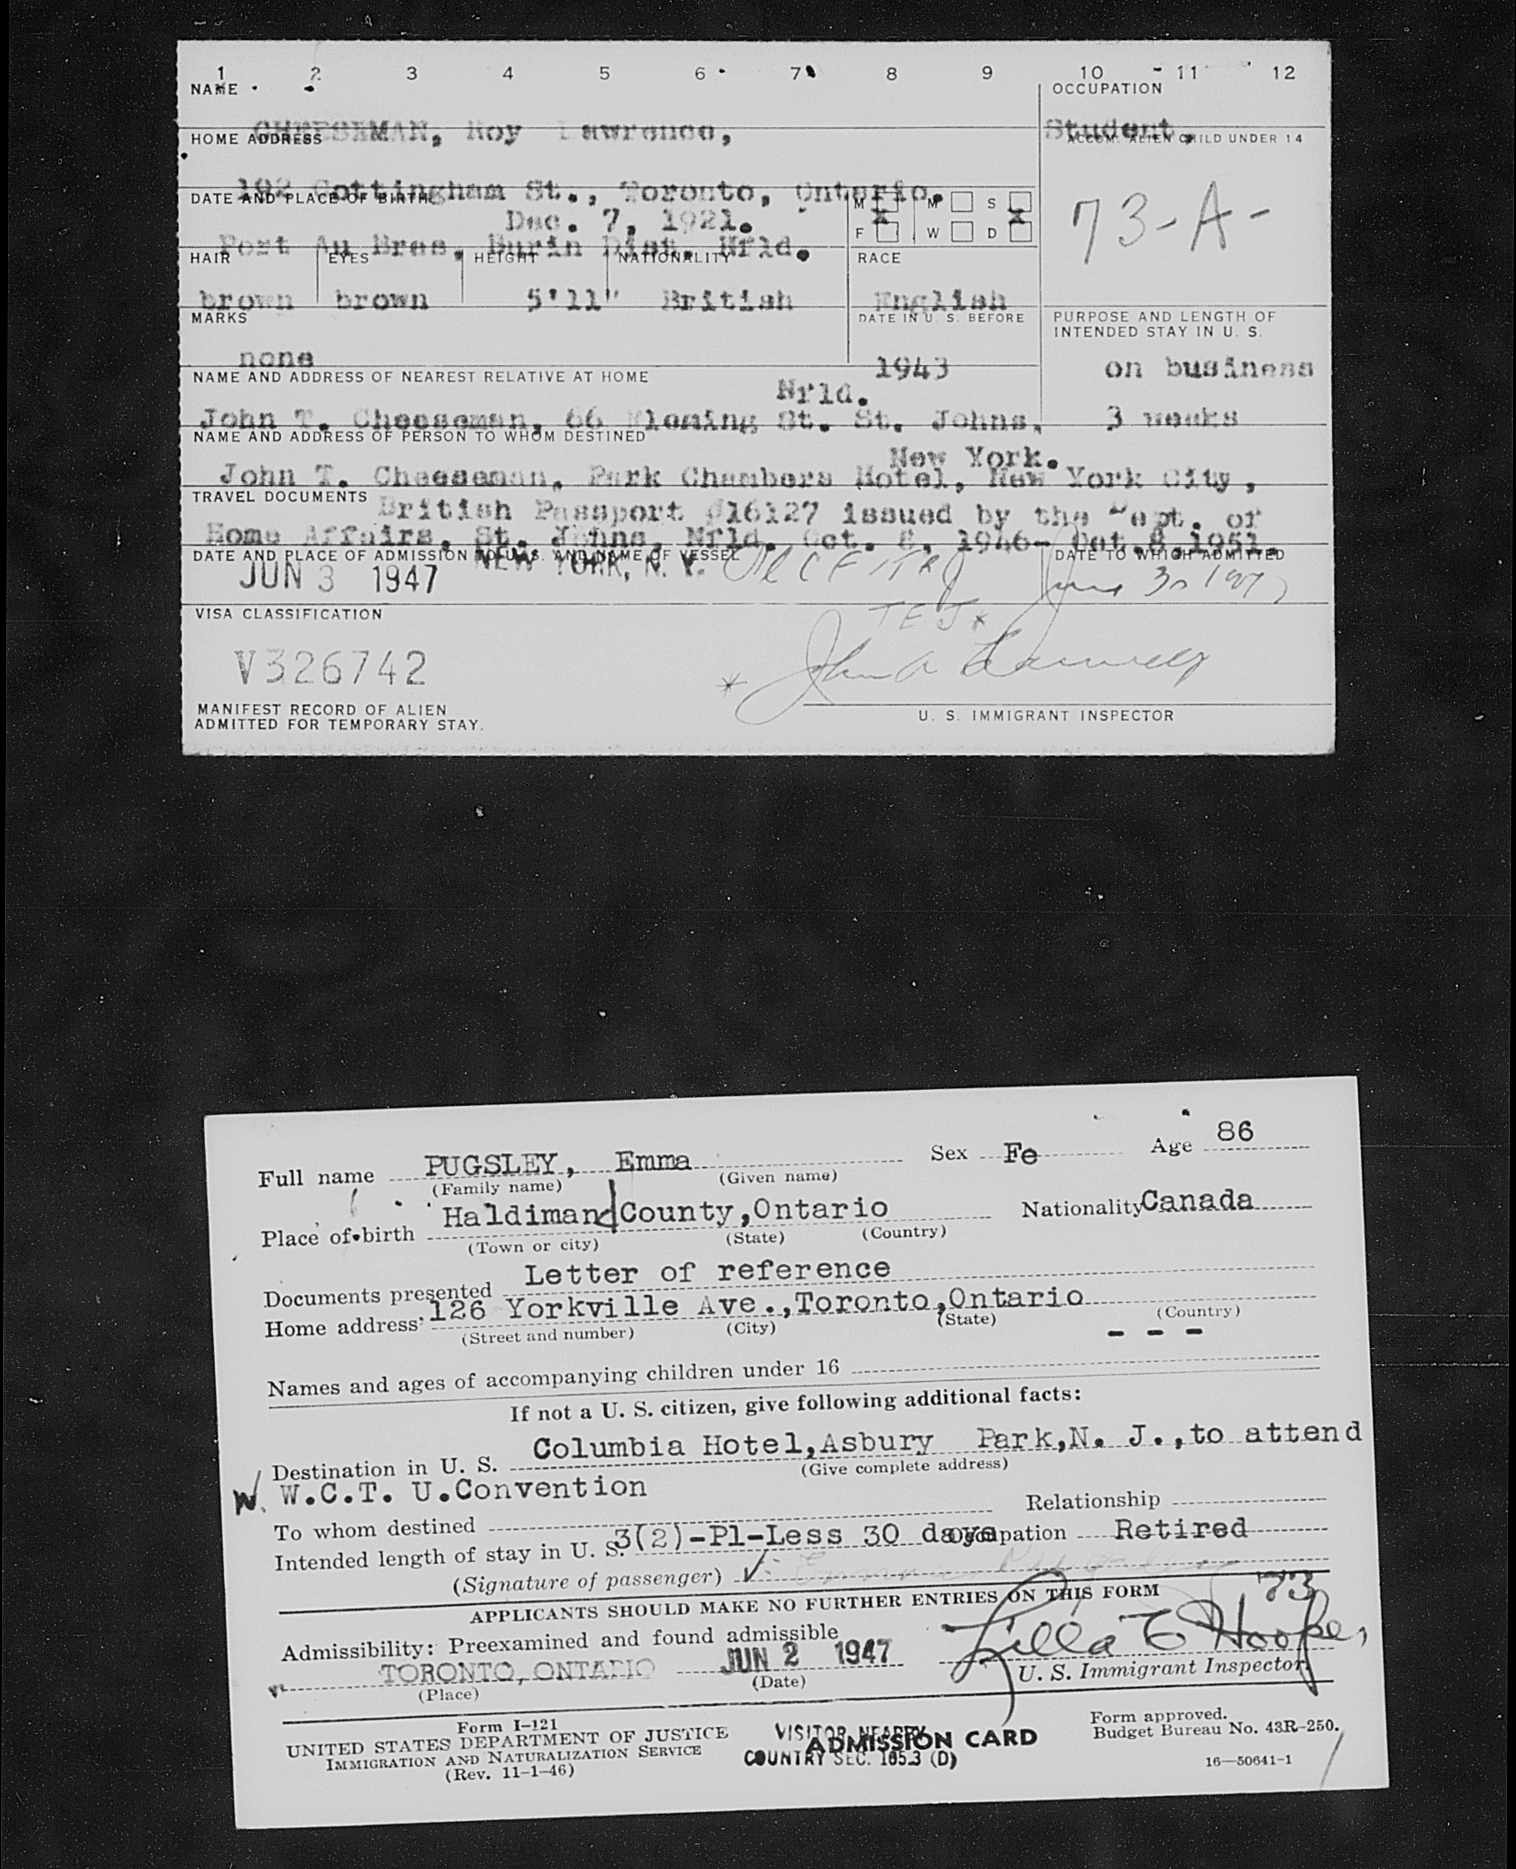 1 2 3 4 5 6 7 8 9 10 11 12
NAME OCCUPATION
CHEESEMAN, Roy Lawrence, Student,
HOME ADDRESS ACCOM. ALIEN CHILD UNDER 14
192 Cottingham St., Toronto, Ontario.
DATE AND PLACE OF BIRTH M M S
Dec. 7, 1921. X X
F W D 73-A-
Port Au Bras, Burin Dist. Nfld.
HAIR EYES HEIGHT NATIONALITY RACE
brown brown 5'11" British English
MARKS DATE IN U. S. BEFORE PURPOSE AND LENGTH OF
INTENDED STAY IN U. S.
none 1943 on business
NAME AND ADDRESS OF NEAREST RELATIVE AT HOME
Nfld.
John T. Cheeseman, 66 Fleming St. St. Johns, 3 weeks
NAME AND ADDRESS OF PERSON TO WHOM DESTINED
New York.
John T. Cheeseman, Park Chambers Hotel, New York City,
TRAVEL DOCUMENTS
British Passport #16127 issued by the Dept. of
Home Affairs, St. Johns, Nfld. Oct. 8, 1946- Oct.8,1951.
DATE AND PLACE OF ADMISSION TO U.S. AND NAME OF VESSEL DATE TO WHICH ADMITTED
JUN 3 1947 NEW YORK, N. Y. June 30 1947
VISA CLASSIFICATION
V326742
MANIFEST RECORD OF ALIEN
ADMITTED FOR TEMPORARY STAY.
U. S. IMMIGRANT INSPECTOR
Full name PUGSLEY, Emma Sex Fe Age 86
(Family name) (Given name)
Place of birth Haldimand County,Ontario Nationality Canada
(Town or city) (State) (Country)
Documents presented Letter of reference
Home address 126 Yorkville Ave.,Toronto,Ontario
(Street and number) (City) (State) (Country)
- - -
Names and ages of accompanying children under 16
If not a U. S. citizen, give following additional facts:
Destination in U. S. Columbia Hotel,Asbury Park,N. J.,to attend
(Give complete address)
W. W.C.T. U.Convention
To whom destined Relationship
Intended length of stay in U. S. 3(2)-Pl-Less 30 days Occupation Retired
(Signature of passenger)
APPLICANTS SHOULD MAKE NO FURTHER ENTRIES ON THIS FORM 73
Admissibility: Preexamined and found admissible
TORONTO, ONTARIO JUN 2 1947 Lilla E Hoope,
(Place) (Date) U. S. Immigrant Inspector.
Form I-121
UNITED STATES DEPARTMENT OF JUSTICE
IMMIGRATION AND NATURALIZATION SERVICE
(Rev. 11-1-46)
VISITOR NEARBY
ADMISSION CARD
COUNTRY SEC. 165.3 (D)
Form approved.
Budget Bureau No. 43R-250.
16—50641-1